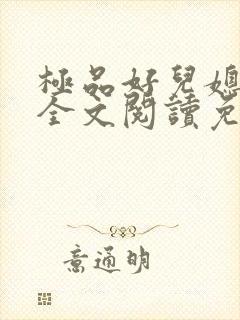 極品好兒媳
全文閱讀免
意通明